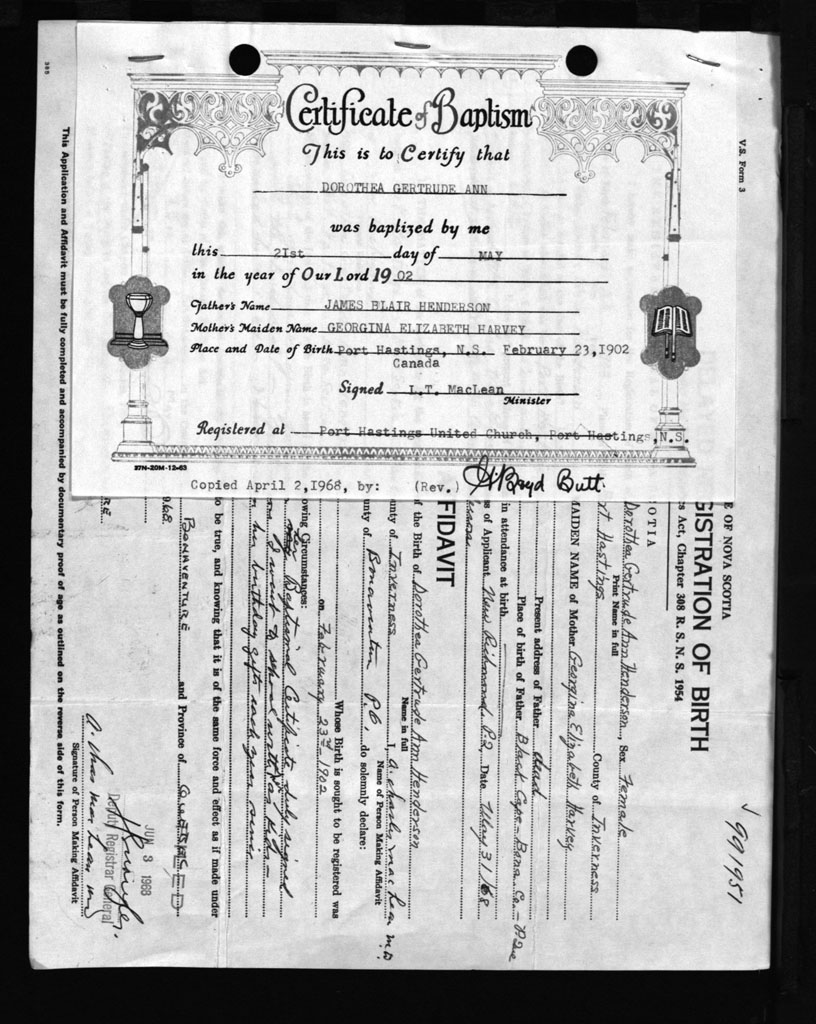 Certificate of Baptism
This is to Certify that
DOROTHEA GERTRUDE ANN
was baptized by me
this 21st day of MAY
in the year of Our Lord 1902
Father's Name JAMES BLAIR HENDERSON
Mother's Maiden Name GEORGINA ELIZABETH HARVEY
Place and Date of Birth Port Hastings, N.S. February 23,1902
Canada
Signed L.T. MacLean
Minister
Registered at Port Hastings United Church, Port Hastings, N.S.
27N-20M-12-63
Copied April 2,1968, by: (Rev.) H Boyd Butt.
V.S. Form 3
991951
E OF NOVA SCOTIA
GISTRATION OF BIRTH
s Act, Chapter 308 R. S. N. S. 1954
OTIA
Dorothea Gertrude Ann Henderson, Sex Female
Print Name in full
rt Hastings County of Inverness
AIDEN NAME of Mother Georgina Elizabeth Harvey
Present address of Father dead
Place of birth of Father Black Cape - Bona. Co. - P.Que
in attendance at birth
s of Applicant New Richmond, P.Q. Date May 31/68
FIDAVIT
f the Birth of Dorothea Gertrude Ann Henderson
Name in full
unty of Inverness I, A. Charles MacLean M.D.
Name of Person Making Affidavit
unty of Bonaventure P.Q., do solemnly declare:
Whose Birth is sought to be registered was
on February 23rd 1902
owing Circumstances:
her Baptismal Certificate duly signed
I went to school with
her birthday gifts each year since
o be true, and knowing that it is of the same force and effect as if made under
BONAVENTURE and Province of QUEBEC
1968.
A. Charles MacLean MD
Signature of Person Making Affidavit
JUN 3 1968
Deputy Registrar General
This Application and Affidavit must be fully completed and accompanied by documentary proof of age as outlined on the reverse side of this form.